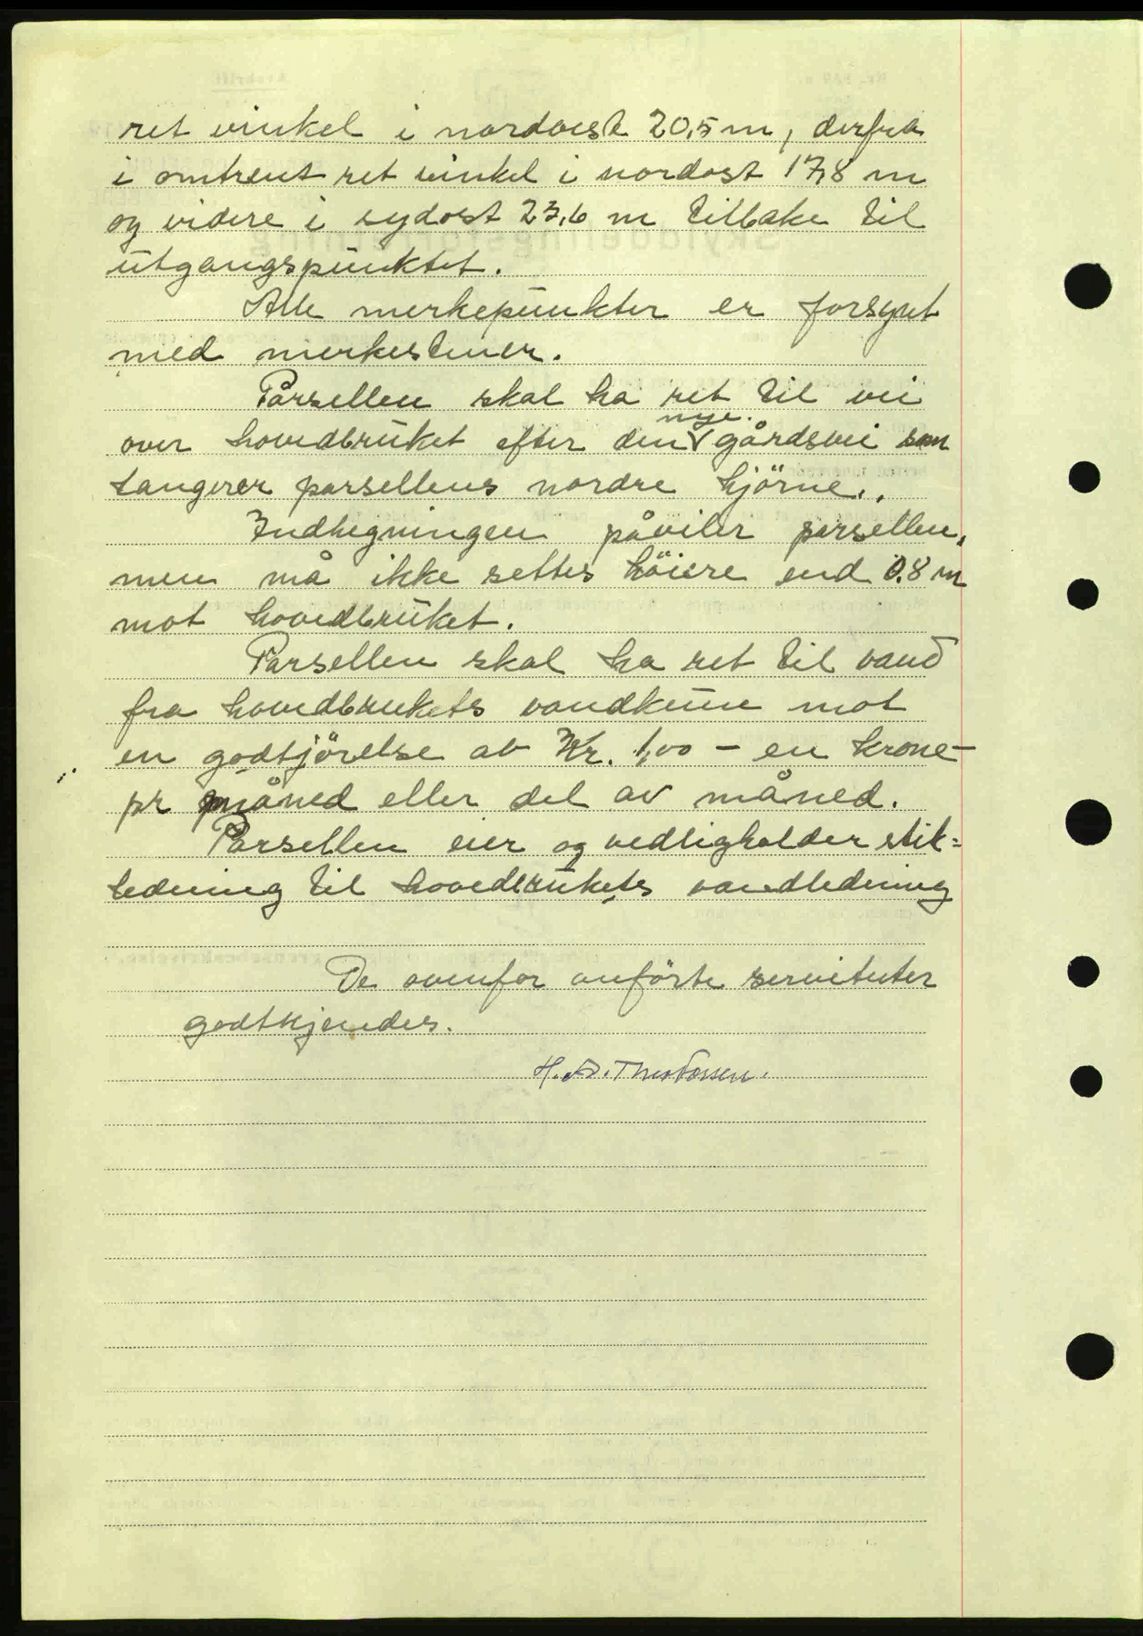 ret vinkel i nordvest 20,5 m, derfra
i omtrent ret vinkel i nordost 17,8 m
og videre i sydost 23,6 m tilbake til
utgangspunktet.
Alle merkepunkter er forsynt
med merkestener.
Parsellen skal ha ret til vei
nye
over hovedbruket efter den gårdsvei som
tangerer parsellens nordre hjörne.
Indhegningen påviler parsellen,
men må ikke settes höiere end 0.8 m
mot hovedbruket.
Parsellen skal ha ret til vand
fra hovedbrukets vandkum mot
en godtjörelse av Kr. 1,00 - en krone -
pr måned eller del av måned.
Parsellen eier og vedligholder stik=
ledning til hovedbrukets vandledning
De ovenfor anförte servituter
godtkjendes.